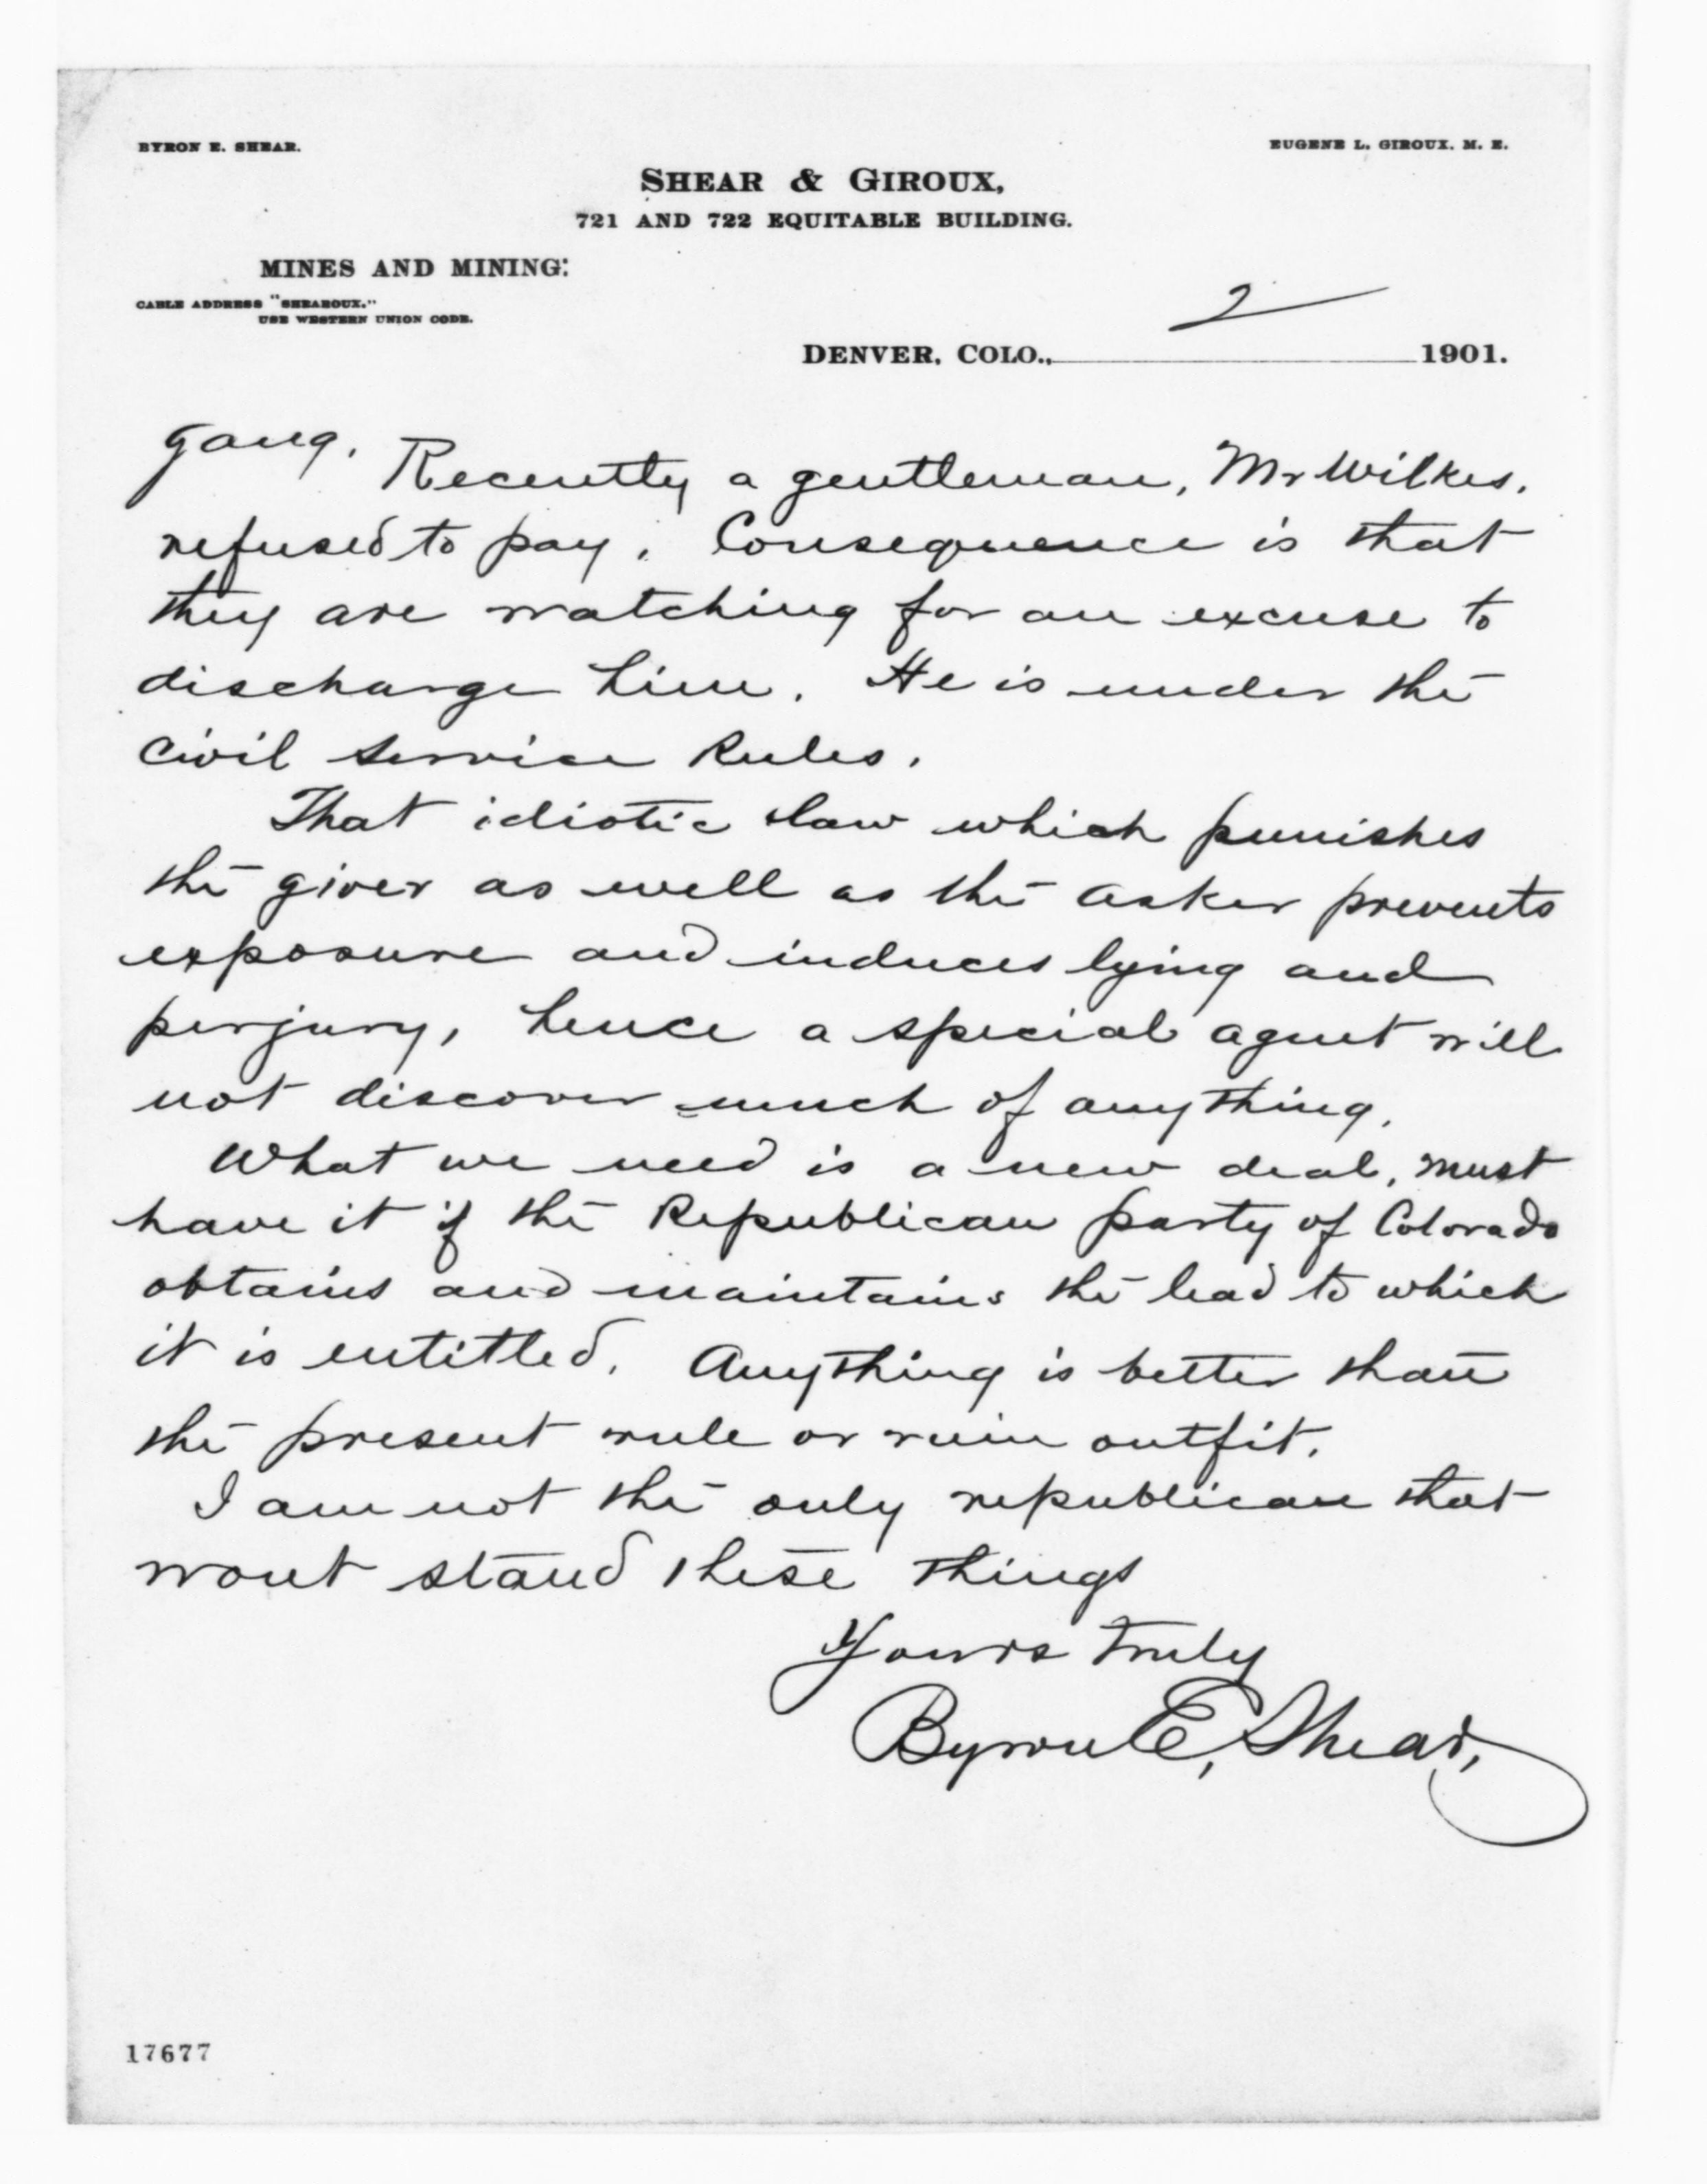 BYRON E. SHEAR.
EUGENE L. GIROUX. M. E.
SHEAR & GIROUX,
721 AND 722 EQUITABLE BUILDING.
MINES AND MINING:
CABLE ADDRESS "SHEAROUX."
USE WESTERN UNION CODE.
2
DENVER, COLO., 1901.
gang. Recently a gentleman, Mr Wilkes,
refused to pay. Consequence is that
they are watching for an excuse to
discharge him. He is under the
Civil Service Rules.
That idiotic law which punishes
the giver as well as the asker prevents
exposure and induces lying and
perjury, hence a special agent will
not discover much of anything.
What we need is a new deal, must
have it if the Republican party of Colorado
obtains and maintains the lead to which
it is entitled. Anything is better than
the present rule or ruin outfit.
I am not the only republican that
wont stand these things
Yours truly
Byron E. Shear,
17677